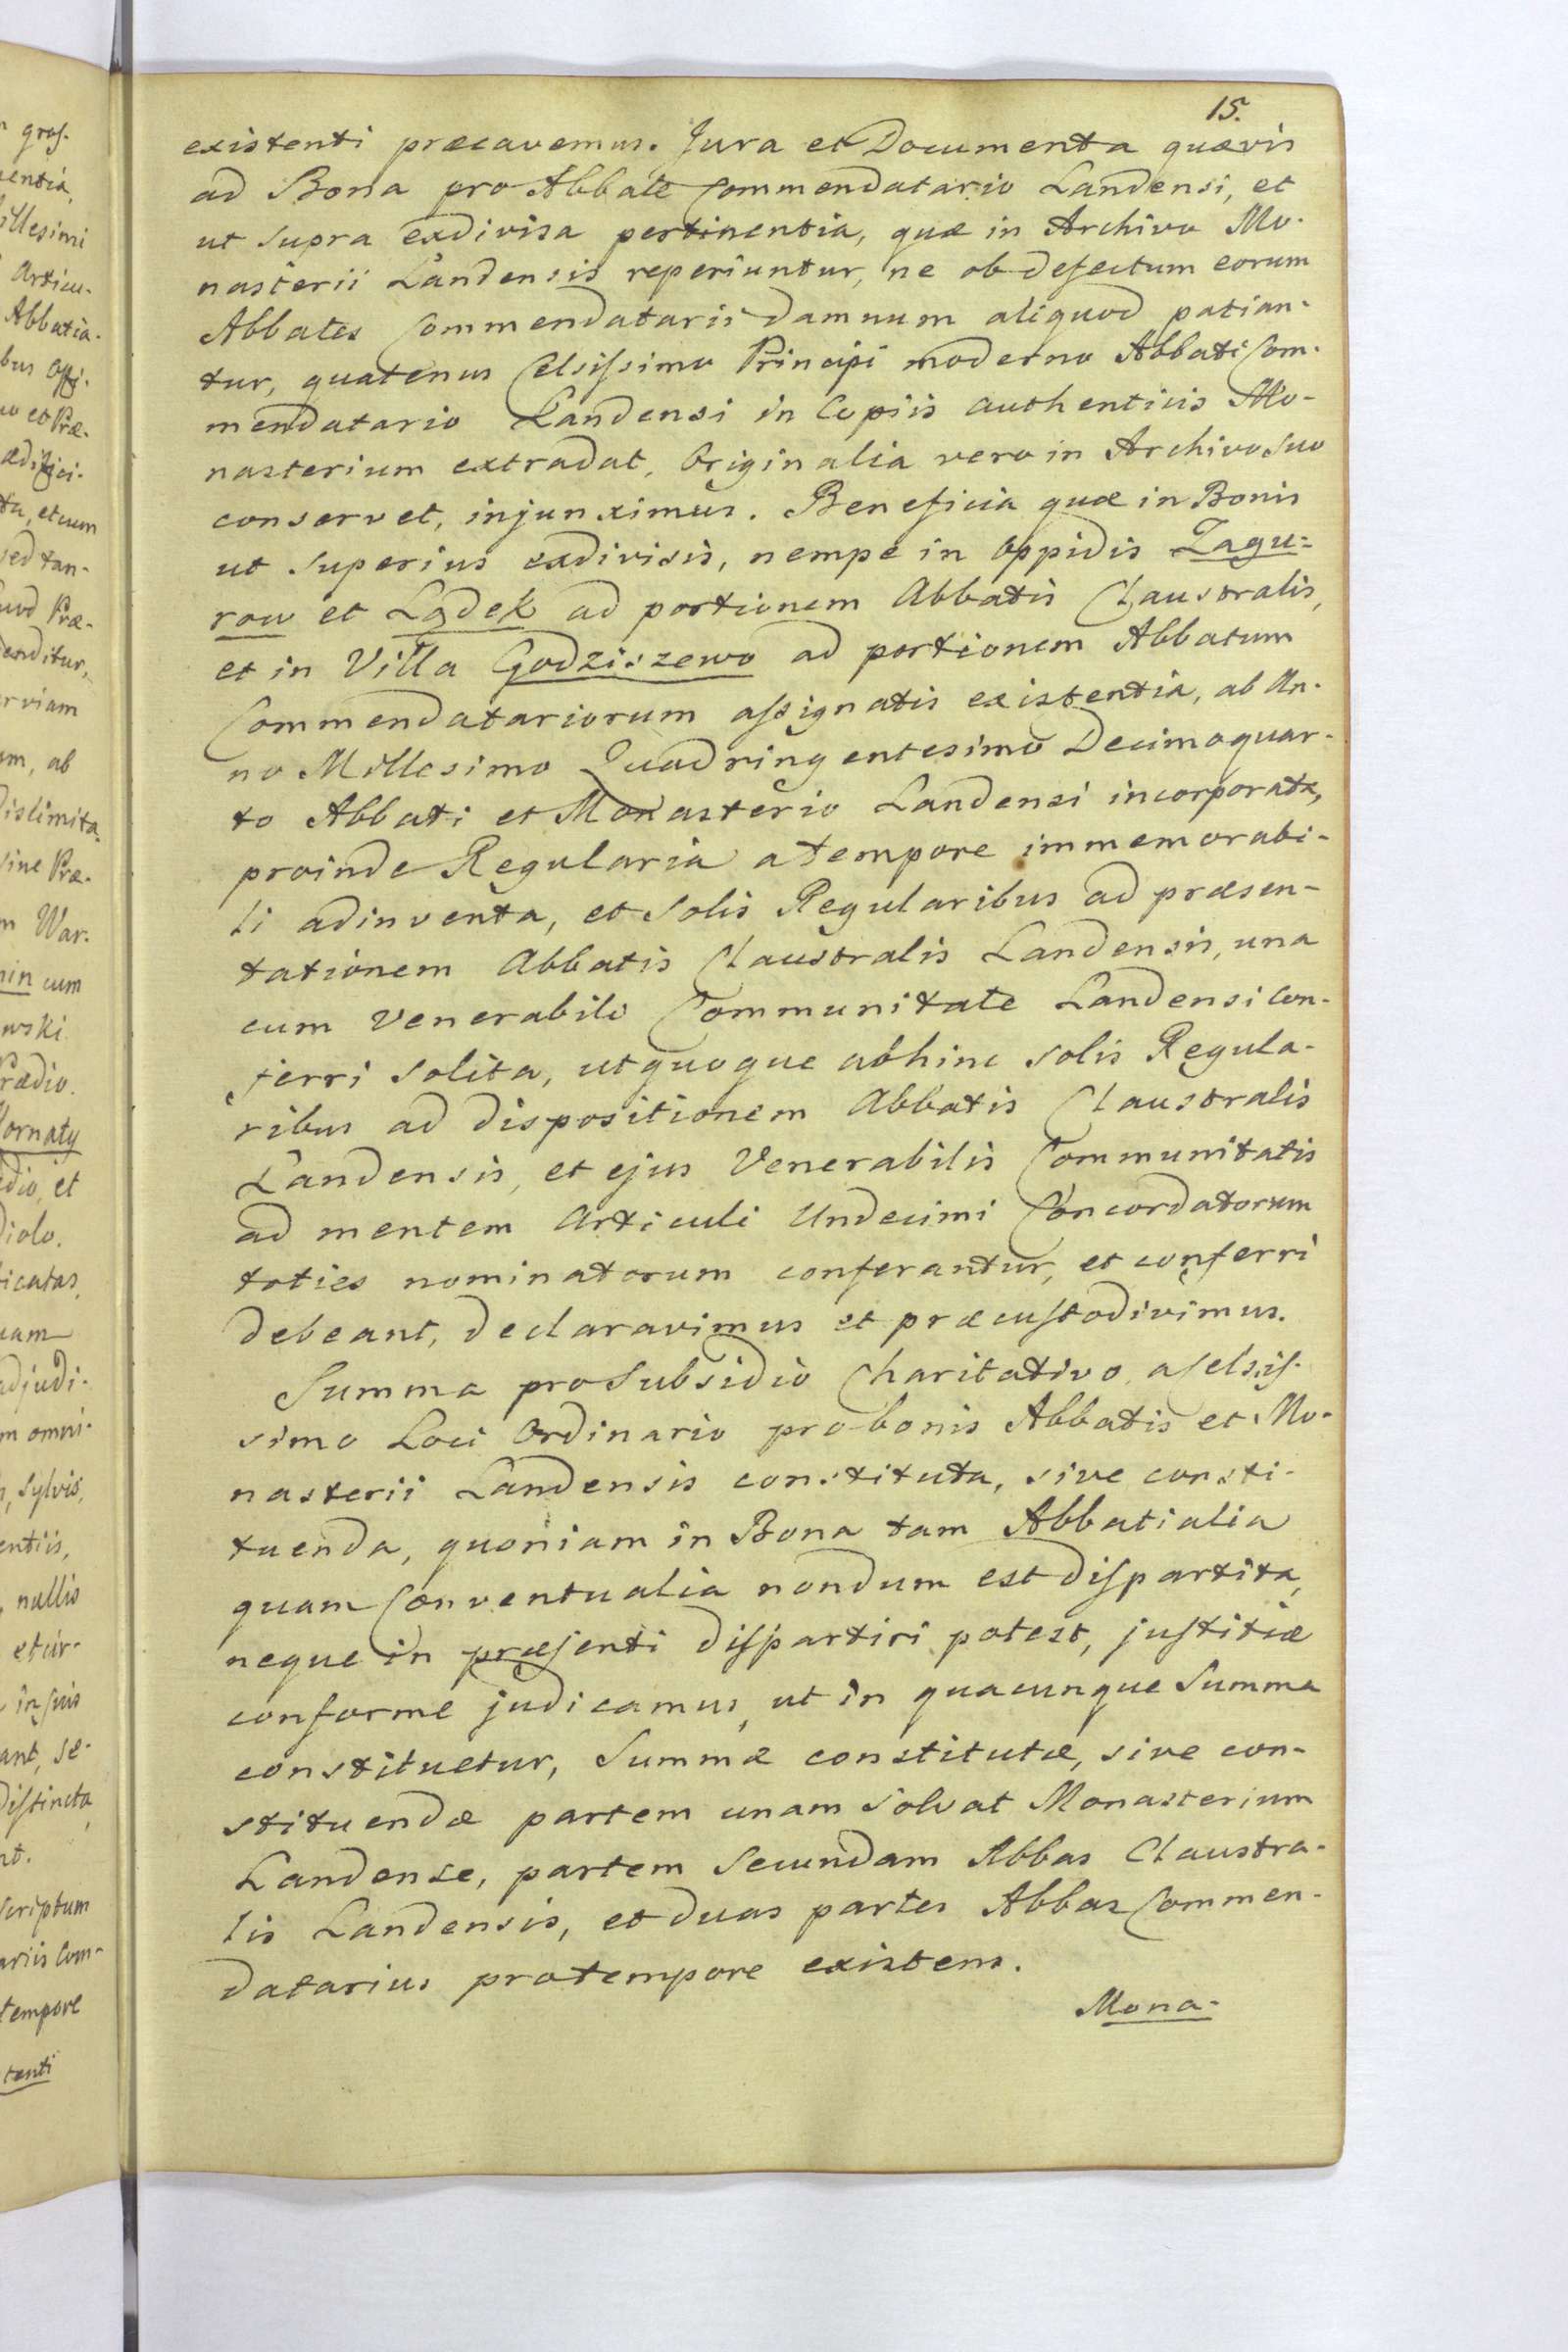 15.
existenti præcavemus. Jura et Documenta quævis
ad Bona pro Abbate Commendatario Landensi, et
ut supra exdivisa pertinentia, quæ in Archivo Mo-
nasterii Landensis reperiuntur, ne ob defectum eorum
Abbates Commendatarii damnum aliquod patian-
tur, quatenus Celsissimo Principi moderno Abbati Com-
mendatario Landensi in Copiis authenticis Mo-
nasterium extradat, Originalia vero in Archivo suo
conservet, injunximus. Beneficia quæ in Bonis
ut superius exdivisis, nempe in Oppidis Zagu-
row et Lądek ad portionem Abbatis Claustralis,
et in Villa Godziszewo ad portionem Abbatum
Commendatariorum assignatis existentia, ab An-
no Millesimo Quadringentesimo Decimoquar-
to Abbati et Monasterio Landensi incorporata,
proinde Regularia a tempore immemorabi-
li adinventa, et solis Regularibus ad præsen-
tationem Abbatis Claustralis Landensis, una
cum Venerabili Communitate Landensi con-
ferri solita, ut quoque abhinc solis Regula-
ribus ad dispositionem Abbatis Claustralis
Landensis, et ejus Venerabilis Communitatis
ad mentem Articuli Undecimi Concordatorum
toties nominatorum conferantur, et conferri
debeant, declaravimus et præcustodivimus.
Summa pro Subsidio Charitativo a Celsis-
simo Loci Ordinario pro bonis Abbatis et Mo-
nasterii Landensis constituta, sive consti-
tuenda, quoniam in Bona tam Abbatialia
quam Conventualia nondum est dispartita,
neque in præsenti dispartiri potest, justitiæ
conforme judicamus, ut in quacunque Summa
constituetur, Summæ constitutæ, sive con-
stituendæ partem unam solvat Monasterium
Landense, partem Secundam Abbas Claustra-
lis Landensis, et duas partes Abbas Commen-
datarius pro tempore existens.
Mona-